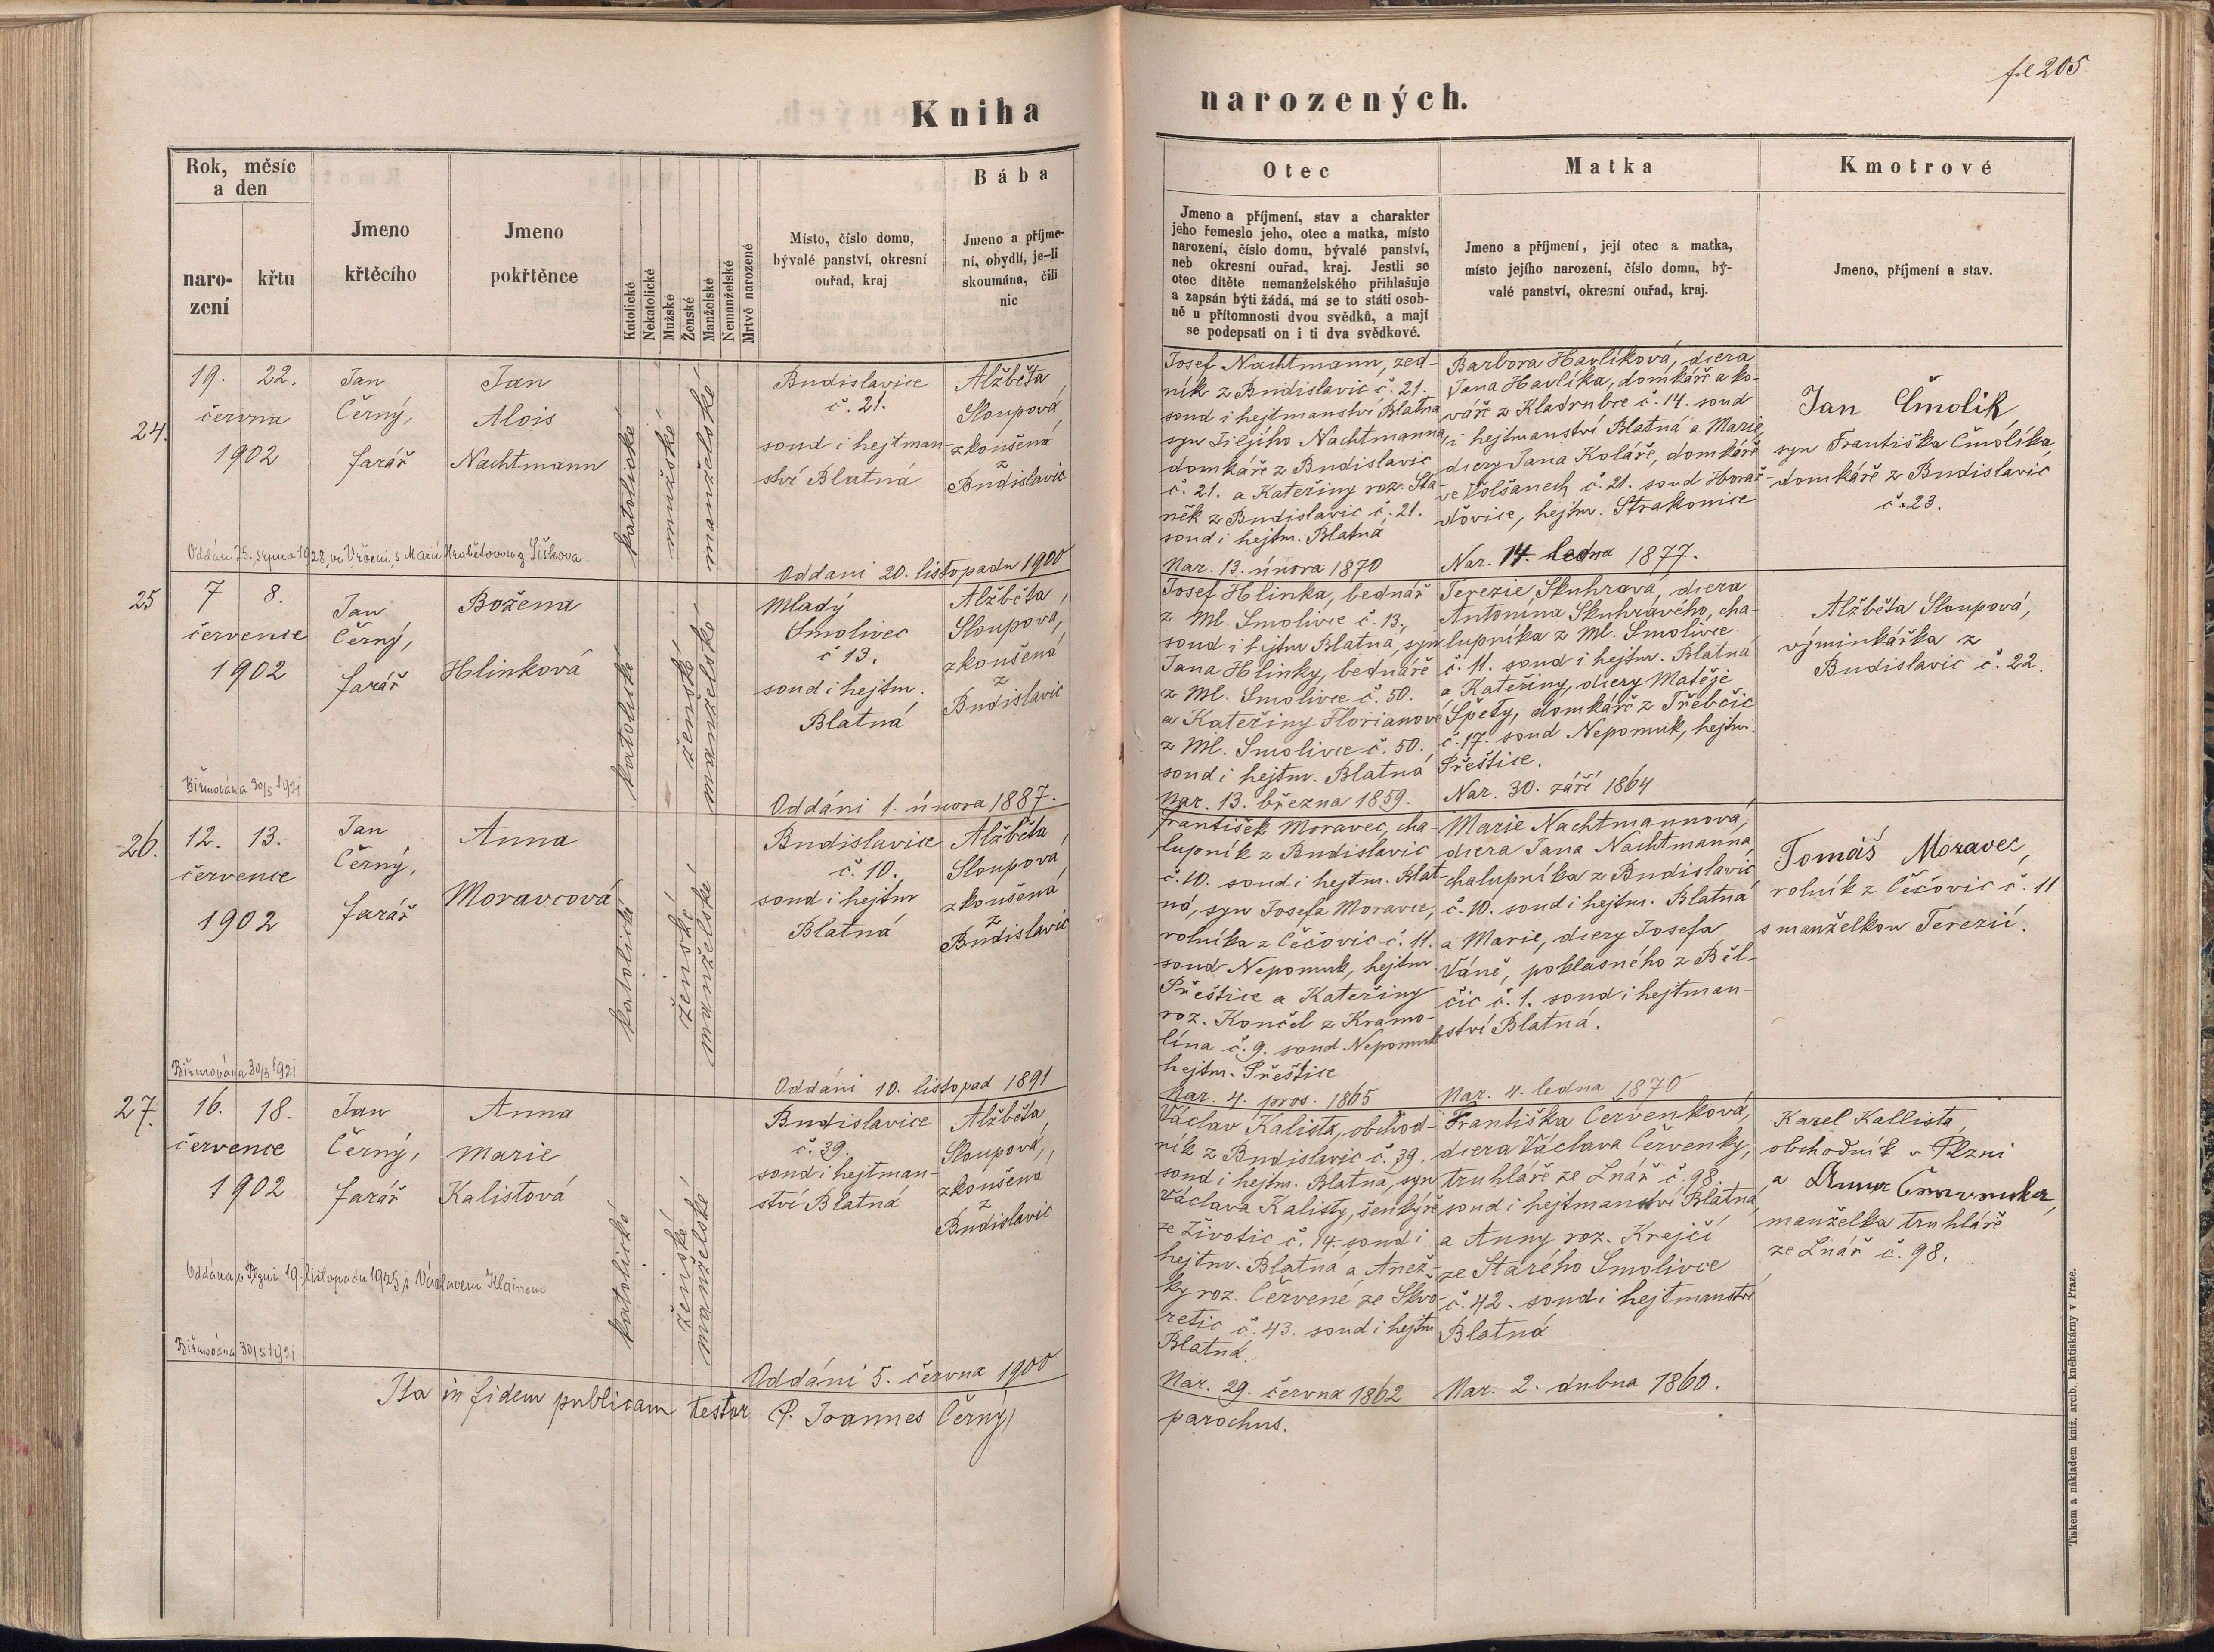 fol 205.
Kniha narozených.
Rok, měsíc
a den
naro-
zení
křtu
Jmeno
křtěcího
Jmeno
pokřtěnce
Katolické
Nekatolické
Mužské
Ženské
Manželské
Nemanželské
Mrtvě narozené
Místo, číslo domu,
bývalé panství, okresní
ouřad, kraj
Bába
Jmeno a příjme-
ní, obydlí, je-li
skoumána, čili
nic
Otec
Jmeno a příjmení, stav a charakter
jeho řemeslo jeho, otec a matka, místo
narození, číslo domu, bývalé panství,
neb okresní ouřad, kraj. Jestli se
otec dítěte nemanželského přihlašuje
a zapsán býti žádá, má se to státi osob-
ně u přítomnosti dvou svědků, a mají
se podepsati on i ti dva svědkové.
Matka
Jmeno a příjmení, její otec a matka,
místo jejího narození, číslo domu, bý-
valé panství, okresní ouřad, kraj.
Kmotrové
Jmeno, příjmení a stav.
24.
19. 22.
června
1902
Jan
Černý,
farář
Jan
Alois
Nachtmann
katolické
mužské
manželské
Budislavice
č. 21.
soud i hejtman-
ství Blatná
Alžběta
Sloupová,
zkoušená
z
Budislavic
Josef Nachtmann, zed-
ník z Budislavic č. 21.
soud i hejtmanství Blatná
syn Jiljího Nachtmanna,
domkáře z Budislavic
č. 21. a Kateřiny roz. Sta-
něk z Budislavic č. 21.
soud i hejtm. Blatná
Nar. 13. února 1870
Barbora Havlíková, dcera
Jana Havlíka, domkáře a ko-
váře z Kladrubce č. 14. soud
i hejtmanství Blatná a Marie,
dcery Jana Koláře, domkáře
ve Volšanech č. 21. soud Horaž-
ďovice, hejtm. Strakonice
Nar. 14. ledna 1877.
Jan Čmolík,
syn Františka Čmolíka,
domkáře z Budislavic
č. 23.
Oddán 25. srpna 1928, ve Vrčeni, s Marií Hrabětovou z Liškova.
Oddani 20. listopadu 1900
25
7 8.
července
1902
Jan
Černý,
farář
Božena
Hlinková
katolické
ženské
manželské
Mladý
Smolivec
č 13.
soud i hejtm.
Blatná
Alžběta
Sloupová,
zkoušená
z
Budislavic
Josef Hlinka, bednář
z Ml. Smolivce č. 13.,
soud i hejtm Blatná, syn
Jana Hlinky, bednáře
z Ml. Smolivce č. 50.
a Kateřiny Florianové
z Ml. Smolivce č. 50.,
soud i hejtm. Blatná
Nar. 13. března 1859.
Terezie Skuhravá, dcera
Antonína Skuhravého, cha-
lupníka z Ml. Smolivce
č. 11. soud i hejtm. Blatná
a Kateřiny, dcery Matěje
Špety, domkáře z Třebčic
č. 17. soud Nepomuk, hejtm.
Přeštice.
Nar. 30. září 1864
Alžběta Sloupová,
výminkářka z
Budislavic č. 22.
Biřmována 30/5 1921
Oddáni 1. února 1887.
26.
12. 13.
července
1902
Jan
Černý,
farář
Anna
Moravcová
katolické
ženské
manželské
Budislavice
č. 10.
soud i hejtm
Blatná
Alžběta
Sloupová,
zkoušená
z
Budislavic
František Moravec, cha-
lupník z Budislavic
č. 10. soud i hejtm. Blat-
ná, syn Josefa Moravce,
rolníka z Čečovic č. 11.
soud Nepomuk, hejtm
Přeštice a Kateřiny
roz. Končel z Kramo-
lína č. 9. soud Nepomuk
hejtm. Přeštice
Nar. 4. pros. 1865
Marie Nachtmannová,
dcera Jana Nachtmanna,
chalupníka z Budislavic
č. 10. soud i hejtm. Blatná
a Marie, dcery Josefa
Váně, poklasného z Běl-
čic č. 1. soud i hejtman-
ství Blatná.
Nar. 4. ledna 1870
Tomáš Moravec,
rolník z Čečovic č. 11
s manželkou Terezií.
Biřmována 30/5 1921
Oddáni 10. listopad 1891
27.
16. 18.
července
1902
Jan
Černý,
farář
Anna
Marie
Kalistová
katolické
ženské
manželské
Budislavice
č. 39.
soud i hejtman-
ství Blatná
Alžběta
Sloupová,
zkoušená
z
Budislavic
Václav Kalista, obchod-
ník z Budislavic č. 39.
soud i hejtm. Blatná, syn
Václava Kalisty, šenkýře
ze Životic č. 14. soud i
hejtm. Blatná a Anež-
ky roz. Červené ze Skvo-
retic č. 43. soud i hejtm
Blatná.
Nar. 29. června 1862
Františka Červenková,
dcera Václava Červenky,
truhláře ze Lnář č. 98.
soud i hejtmanství Blatná,
a Anny roz. Krejčí
ze Starého Smolivce
č. 42. soud i hejtmanství
Blatná
Nar. 2. dubna 1860.
Karel Kallista,
obchodník v Plzni
a Anna Červenka,
manželka truhláře
ze Lnář č. 98.
Oddána v Plzni 19. listopadu 1925 s Václavem
Biřmována 30/5 1921
Oddáni 5. června 1900
Ita in fidem publicam testor P. Joannes Černý,
parochus.
Tiskem a nákladem kníž. arcib. kněhtiskárny v Praze.